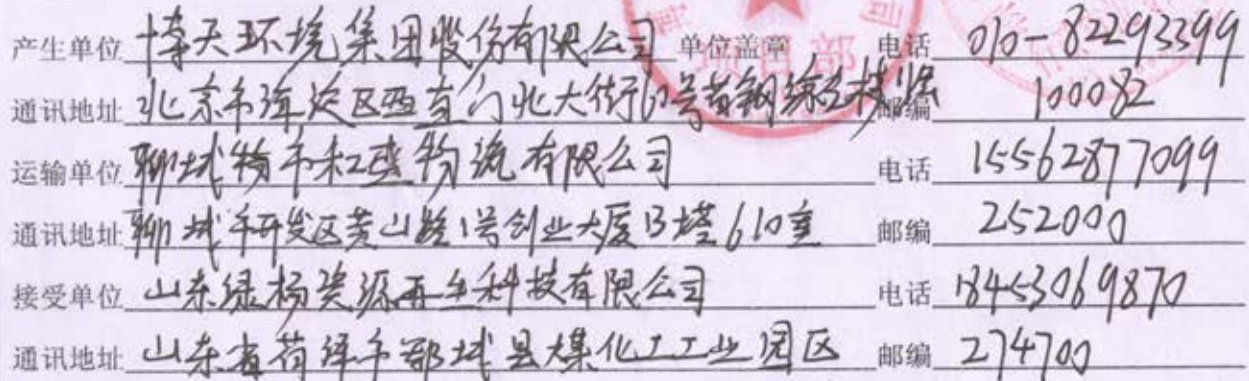 产生单位 博天环境集团股份有限公司 单位盖章 电话 010-82293399
通讯地址 北京市海淀区西直门北大街60号首钢综合楼 邮编 100082
运输单位 聊城市红盛物流有限公司 电话 15562877099
通讯地址 聊城市开发区黄山路1号创业大厦B塔610室 邮编 252000
接受单位 山东绿杨资源再生科技有限公司 电话 18453069870
通讯地址 山东省菏泽市郓城县煤化工工业园区 邮编 274700
项目部